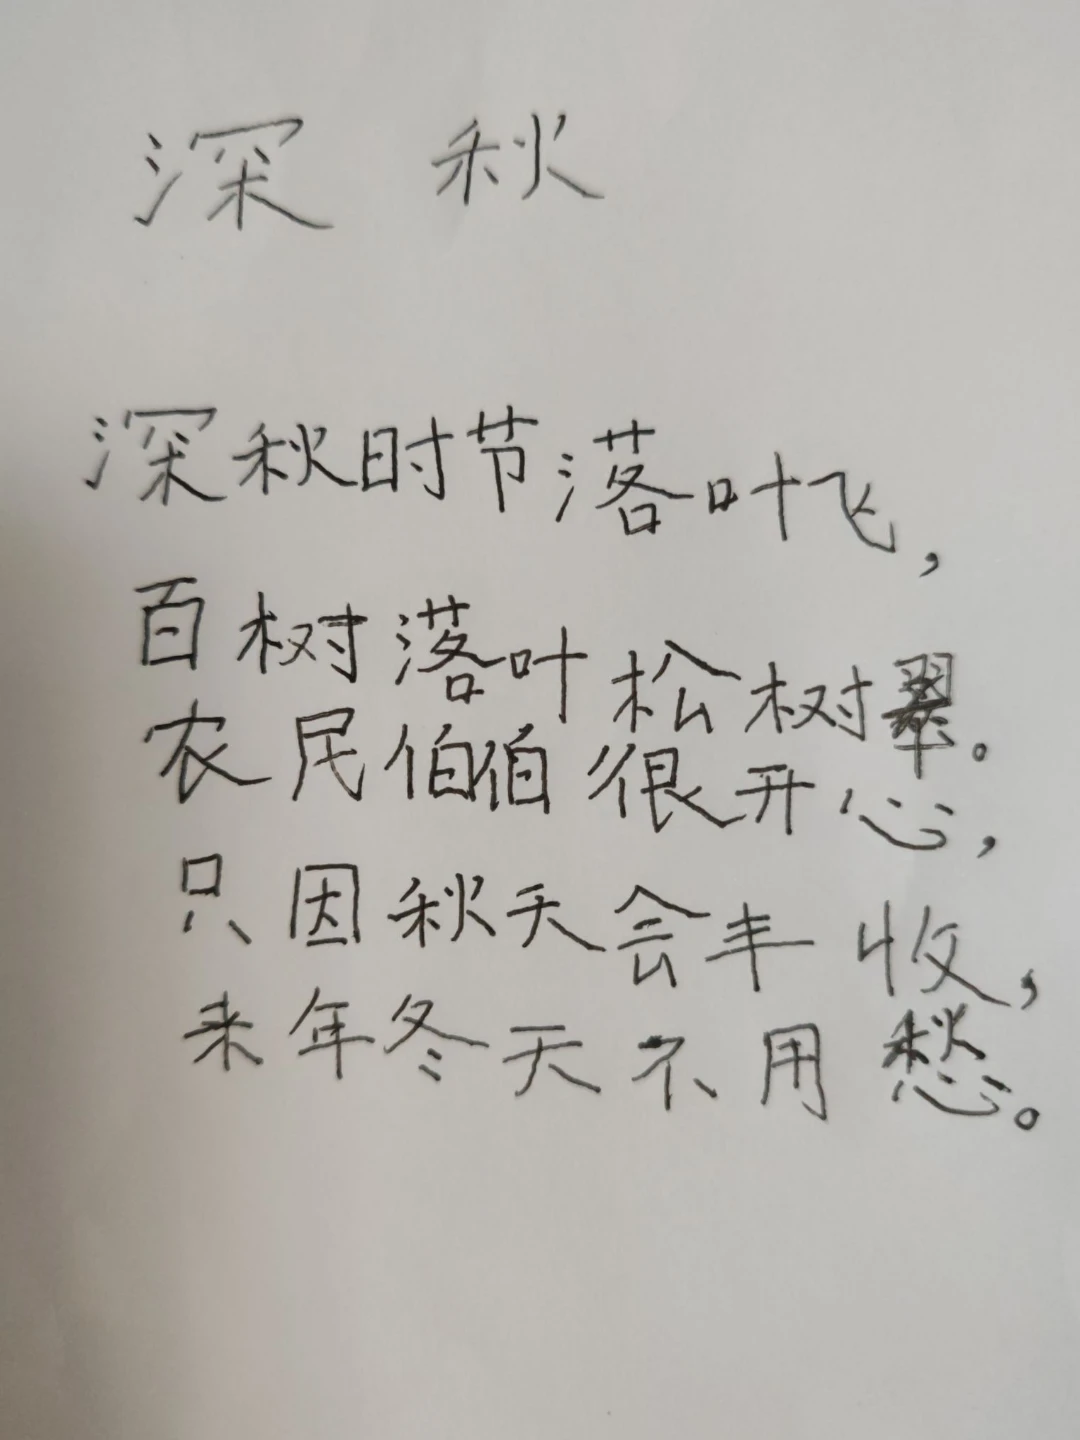 深秋
深秋时节落叶飞，
百树落叶松树翠。
农民伯伯很开心，
只因秋天会丰收，
来年冬天不用愁。